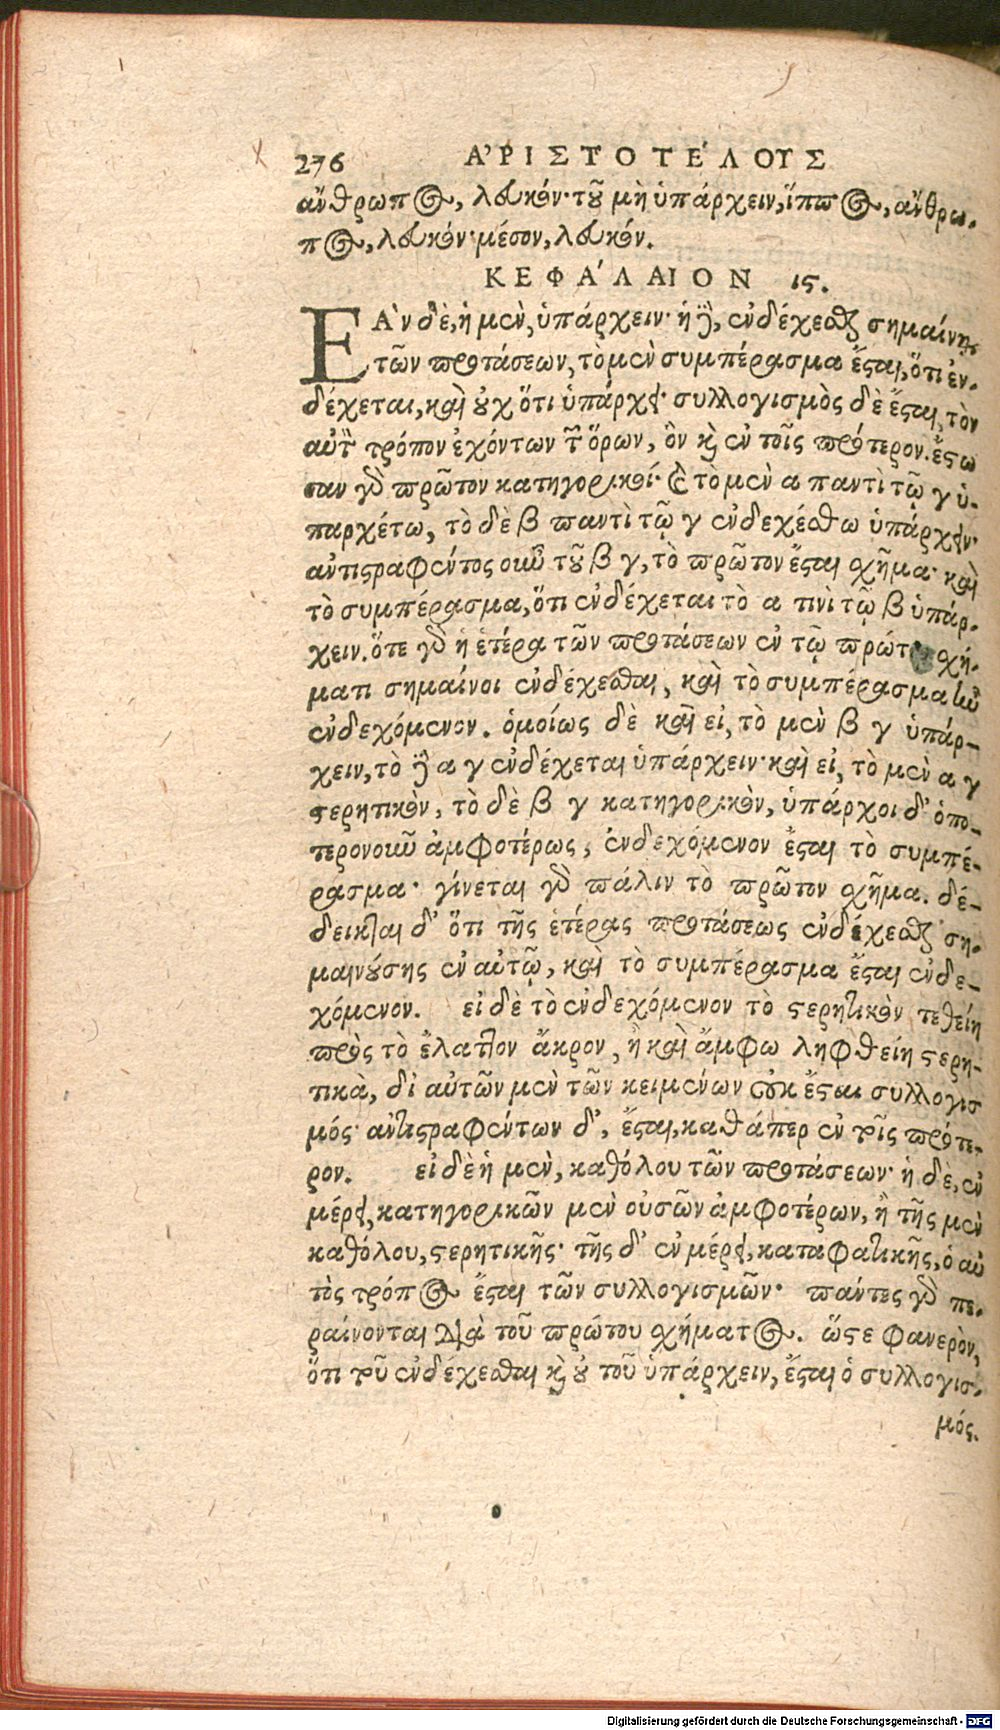 276 ΑʼΡΙΣΤΟΤΕΛΟΥΣ
ἄνθρωπος, λευκόν· τοῦ μὴ ὑπάρχειν, ἵππος, ἄνθρω-
πος, λευκόν· μέσον, λευκόν.
ΚΕΦΑΛΑΙΟΝ ις.
ΕΑʼν δὲ, ἡ μὲν, ὑπάρχειν· ἡ δὲ, ἐνδέχεσθαι σημαίνῃ
τῶν προτάσεων, τὸ μὲν συμπέρασμα ἔσται, ὅτι ἐν-
δέχεται, καὶ οὐχ ὅτι ὑπάρχει· συλλογισμὸς δὲ ἔσται, τὸν
αὐτὸν τρόπον ἐχόντων τῶν ὅρων, ὃν καὶ ἐν τοῖς πρότερον. ἔστω
σαν γὰρ πρῶτον κατηγορικοί· καὶ τὸ μὲν α παντὶ τῷ γ ὑ-
παρχέτω, τὸ δὲ β παντὶ τῷ γ ἐνδεχέσθω ὑπάρχειν·
ἀντιστραφέντος οὖν τοῦ β γ, τὸ πρῶτον ἔσται σχῆμα· καὶ
τὸ συμπέρασμα, ὅτι ἐνδέχεται τὸ α τινὶ τῷ β ὑπάρ-
χειν. ὅτε γὰρ ἡ ἑτέρα τῶν προτάσεων ἐν τῷ πρώτῳ σχή-
ματι σημαίνοι ἐνδέχεσθαι, καὶ τὸ συμπέρασμα ἦν
ἐνδεχόμενον. ὁμοίως δὲ καὶ εἰ, τὸ μὲν β γ ὑπάρ-
χειν, τὸ δὲ α γ ἐνδέχεται ὑπάρχειν· καὶ εἰ, τὸ μὲν α γ
στερητικὸν, τὸ δὲ β γ κατηγορικὸν, ὑπάρχοι δʼ ὁπο-
τερονοῦν ἀμφοτέρως, ἐνδεχόμενον ἔσται τὸ συμπέ-
ρασμα· γίνεται γὰρ πάλιν τὸ πρῶτον σχῆμα. δέ-
δεικται δʼ ὅτι τῆς ἑτέρας προτάσεως ἐνδέχεσθαι ση-
μαινούσης ἐν αὐτῷ, καὶ τὸ συμπέρασμα ἔσται ἐνδε-
χόμενον. εἰ δὲ τὸ ἐνδεχόμενον τὸ στερητικὸν τεθείη
πρὸς τὸ ἔλαττον ἄκρον, ἢ καὶ ἄμφω ληφθείη στερη-
τικὰ, διʼ αὐτῶν μὲν τῶν κειμένων οὐκ ἔσται συλλογισ
μός· ἀντιστραφέντων δʼ, ἔσται, καθάπερ ἐν τοῖς πρότε-
ρον. εἰ δὲ ἡ μὲν, καθόλου τῶν προτάσεων· ἡ δὲ, ἐν
μέρει, κατηγορικῶν μὲν οὐσῶν ἀμφοτέρων, ἢ τῆς μὲν
καθόλου, στερητικῆς· τῆς δʼ ἐν μέρει, καταφατικῆς, ὁ αὐ
τὸς τρόπος ἔσται τῶν συλλογισμῶν· πάντες γὰρ πε-
ραίνονται διὰ τοῦ πρώτου σχήματος. ὥστε φανερὸν,
ὅτι τοῦ ἐνδέχεσθαι καὶ οὐ τοῦ ὑπάρχειν, ἔσται ὁ συλλογισ-
μός.
Digitalisierung gefördert durch die Deutsche Forschungsgemeinschaft - DFG